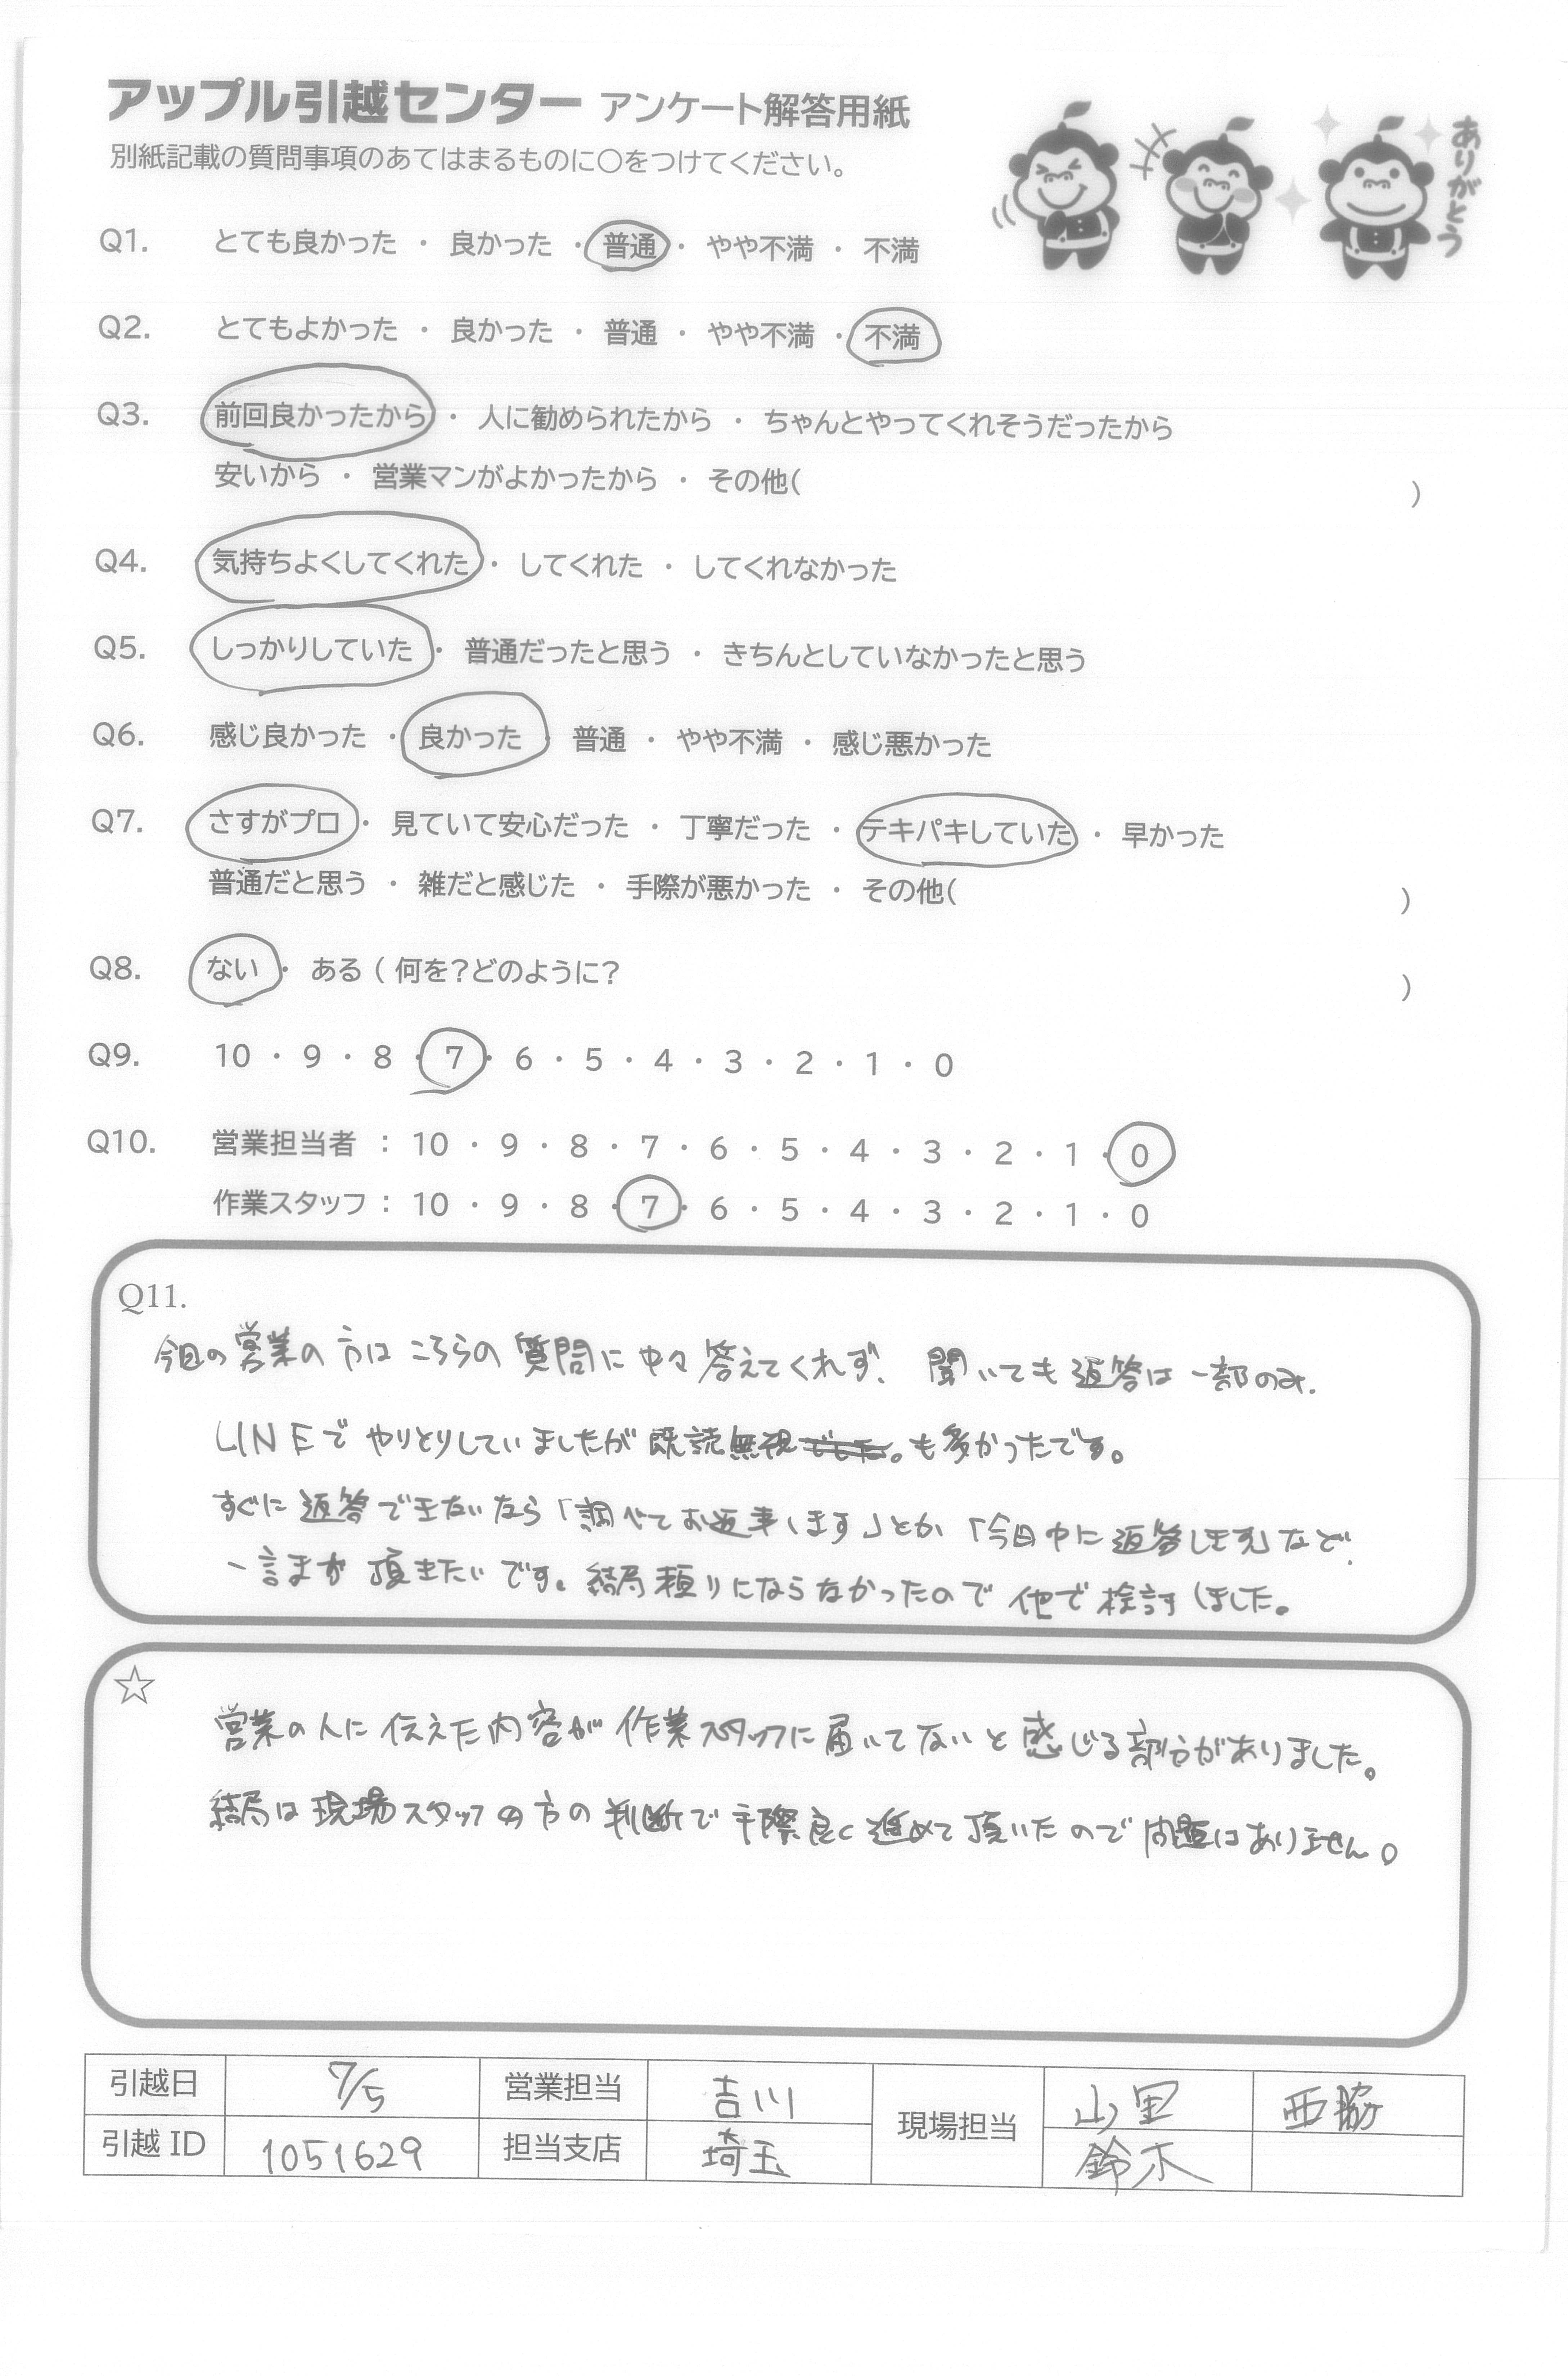 アップル引越センター アンケート解答用紙
別紙記載の質問事項のあてはまるものに〇をつけてください。
ありがとう
Q1. とても良かった ・ 良かった ・ 普通 ・ やや不満 ・ 不満
Q2. とてもよかった ・ 良かった ・ 普通 ・ やや不満 ・ 不満
Q3. 前回良かったから ・ 人に勧められたから ・ ちゃんとやってくれそうだったから
安いから ・ 営業マンがよかったから ・ その他( )
Q4. 気持ちよくしてくれた ・ してくれた ・ してくれなかった
Q5. しっかりしていた ・ 普通だったと思う ・ きちんとしていなかったと思う
Q6. 感じ良かった ・ 良かった ・ 普通 ・ やや不満 ・ 感じ悪かった
Q7. さすがプロ ・ 見ていて安心だった ・ 丁寧だった ・ テキパキしていた ・ 早かった
普通だと思う ・ 雑だと感じた ・ 手際が悪かった ・ その他( )
Q8. ない ・ ある ( 何を?どのように? )
Q9. 10 ・ 9 ・ 8 ・ 7 ・ 6 ・ 5 ・ 4 ・ 3 ・ 2 ・ 1 ・ 0
Q10. 営業担当者 : 10 ・ 9 ・ 8 ・ 7 ・ 6 ・ 5 ・ 4 ・ 3 ・ 2 ・ 1 ・ 0
作業スタッフ : 10 ・ 9 ・ 8 ・ 7 ・ 6 ・ 5 ・ 4 ・ 3 ・ 2 ・ 1 ・ 0
Q11.
今回の営業の方はこちらの質問に中々答えてくれず、聞いても返答は一部のみ.
LINEでやりとりしていましたが既読無視でした。も多かったです。
すぐに返答できないなら「調べてお返事します」とか「今日中に返答します」など、
一言まず頂きたいです。結局頼りにならなかったので他で検討しました。
☆
営業の人に伝えた内容が作業スタッフに届いてないと感じる部分がありました。
結局は現場スタッフの方の判断で手際良く進めて頂いたので問題はありません。
引越日 7/5 営業担当 吉川 現場担当 山里 西脇
引越 ID 1051629 担当支店 埼玉 鈴木